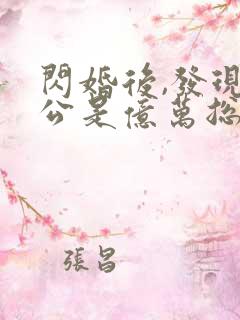 閃婚後,發現
公是億萬總
張昌